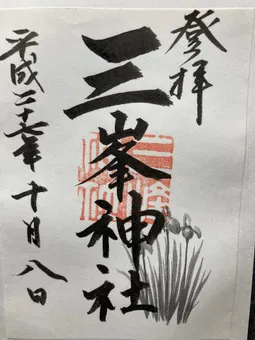 登拝
三峯神社
平成二十七年十月八日